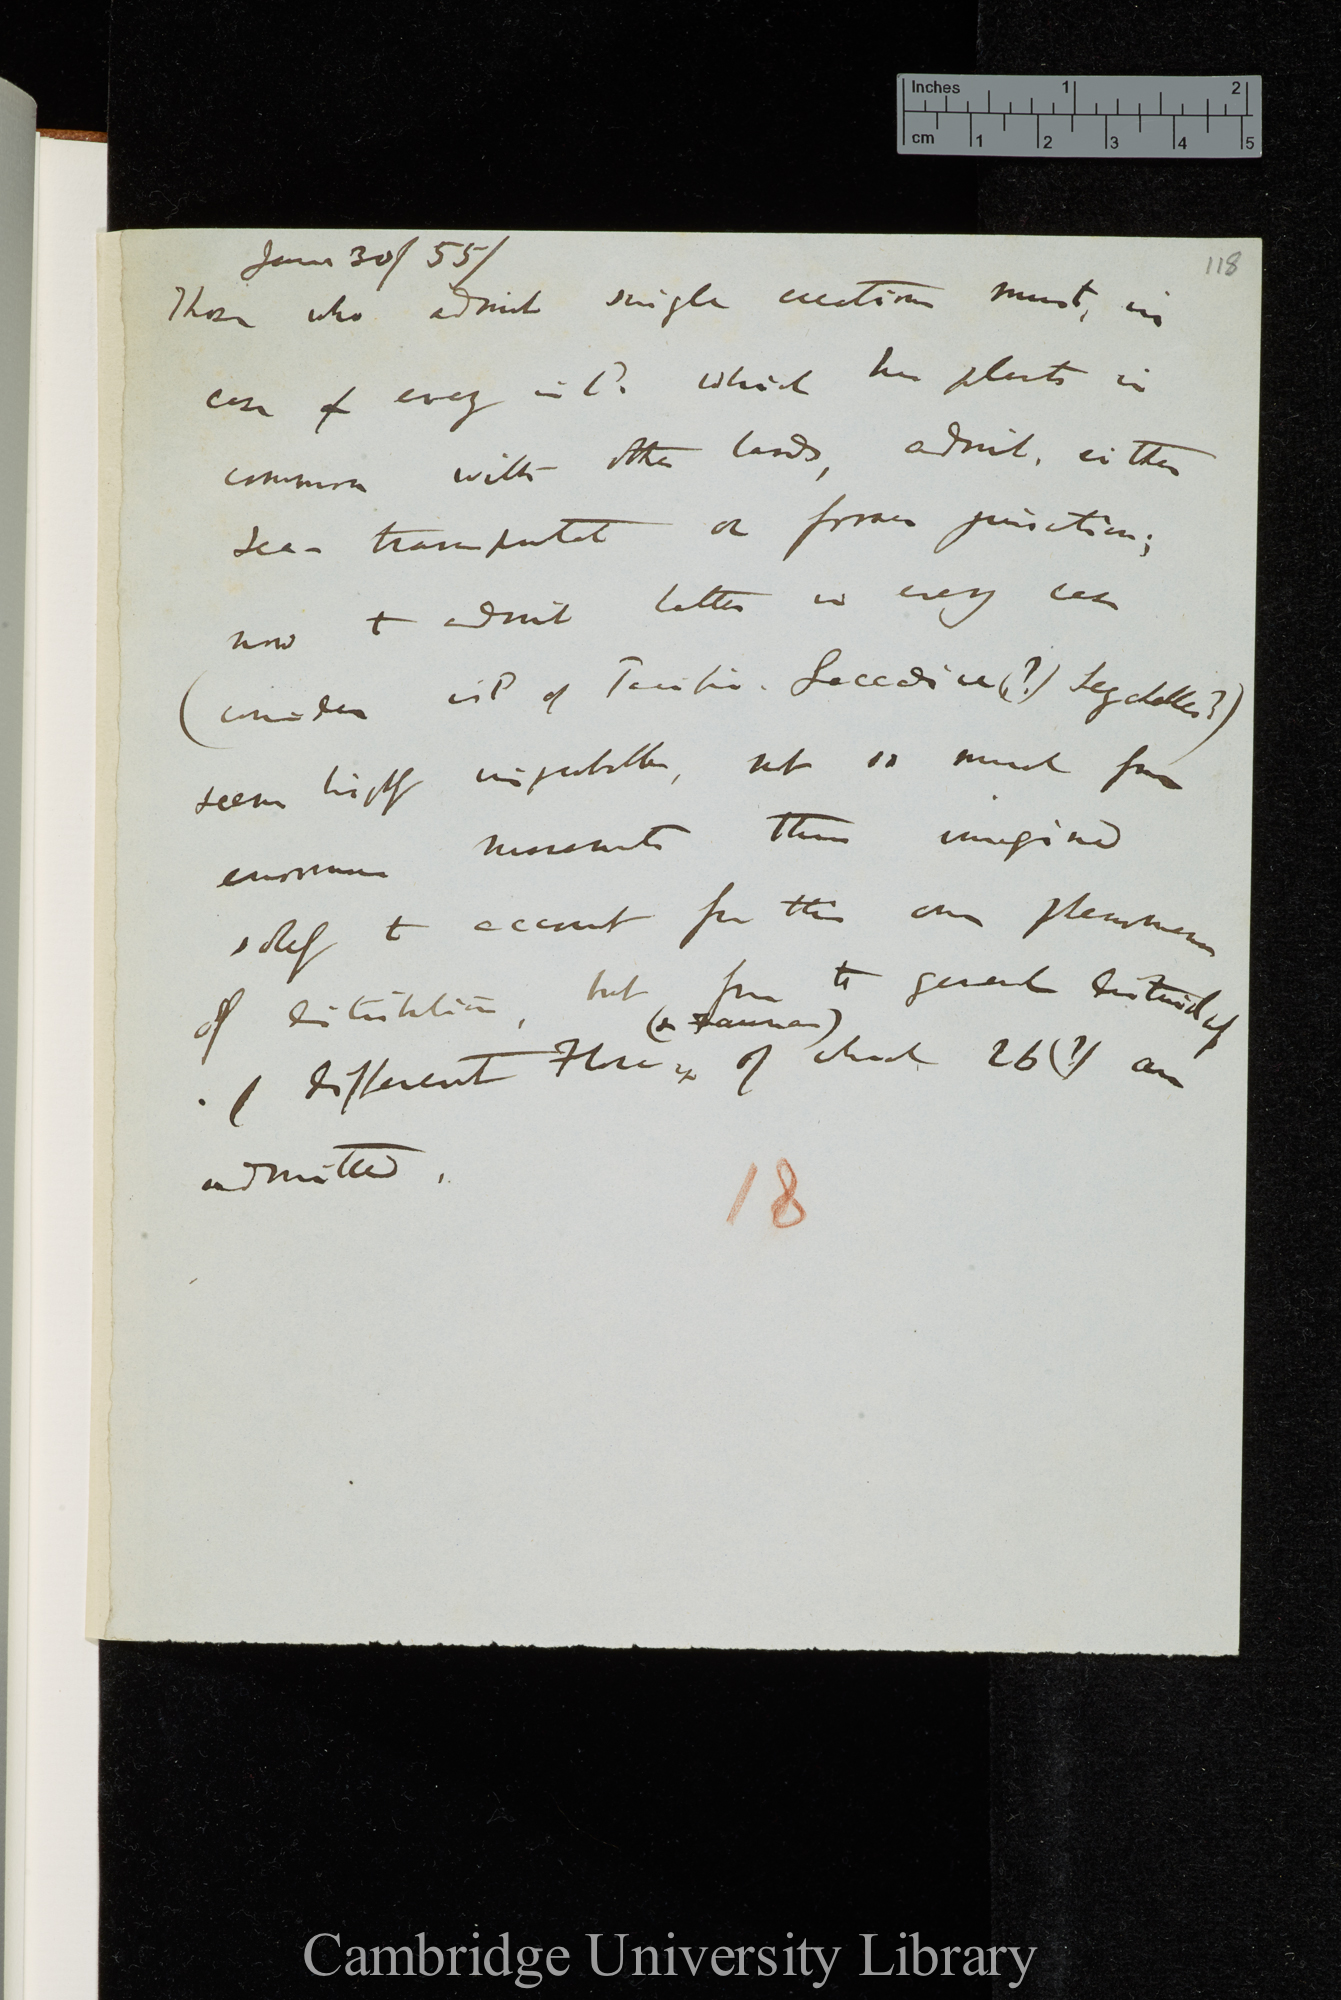 Inches 1 2
cm 1 2 3 4 5
118
June 30/ 55/
Those who admit single creations must, in
case of every isld. which has plants in
common with other lands, admit, either
sea- transportal or former junction;
now to admit latter in every case
(consider isld of Pacific. Laccadive(?) Seychelles?)
seems highly improbable, not so much from
enormous movements thus imagined
solely to account for this one phenomenon
of distribution, but from the general
(or Faunas)
of different Floras of which 26(?) are
admitted.
18
Cambridge University Library